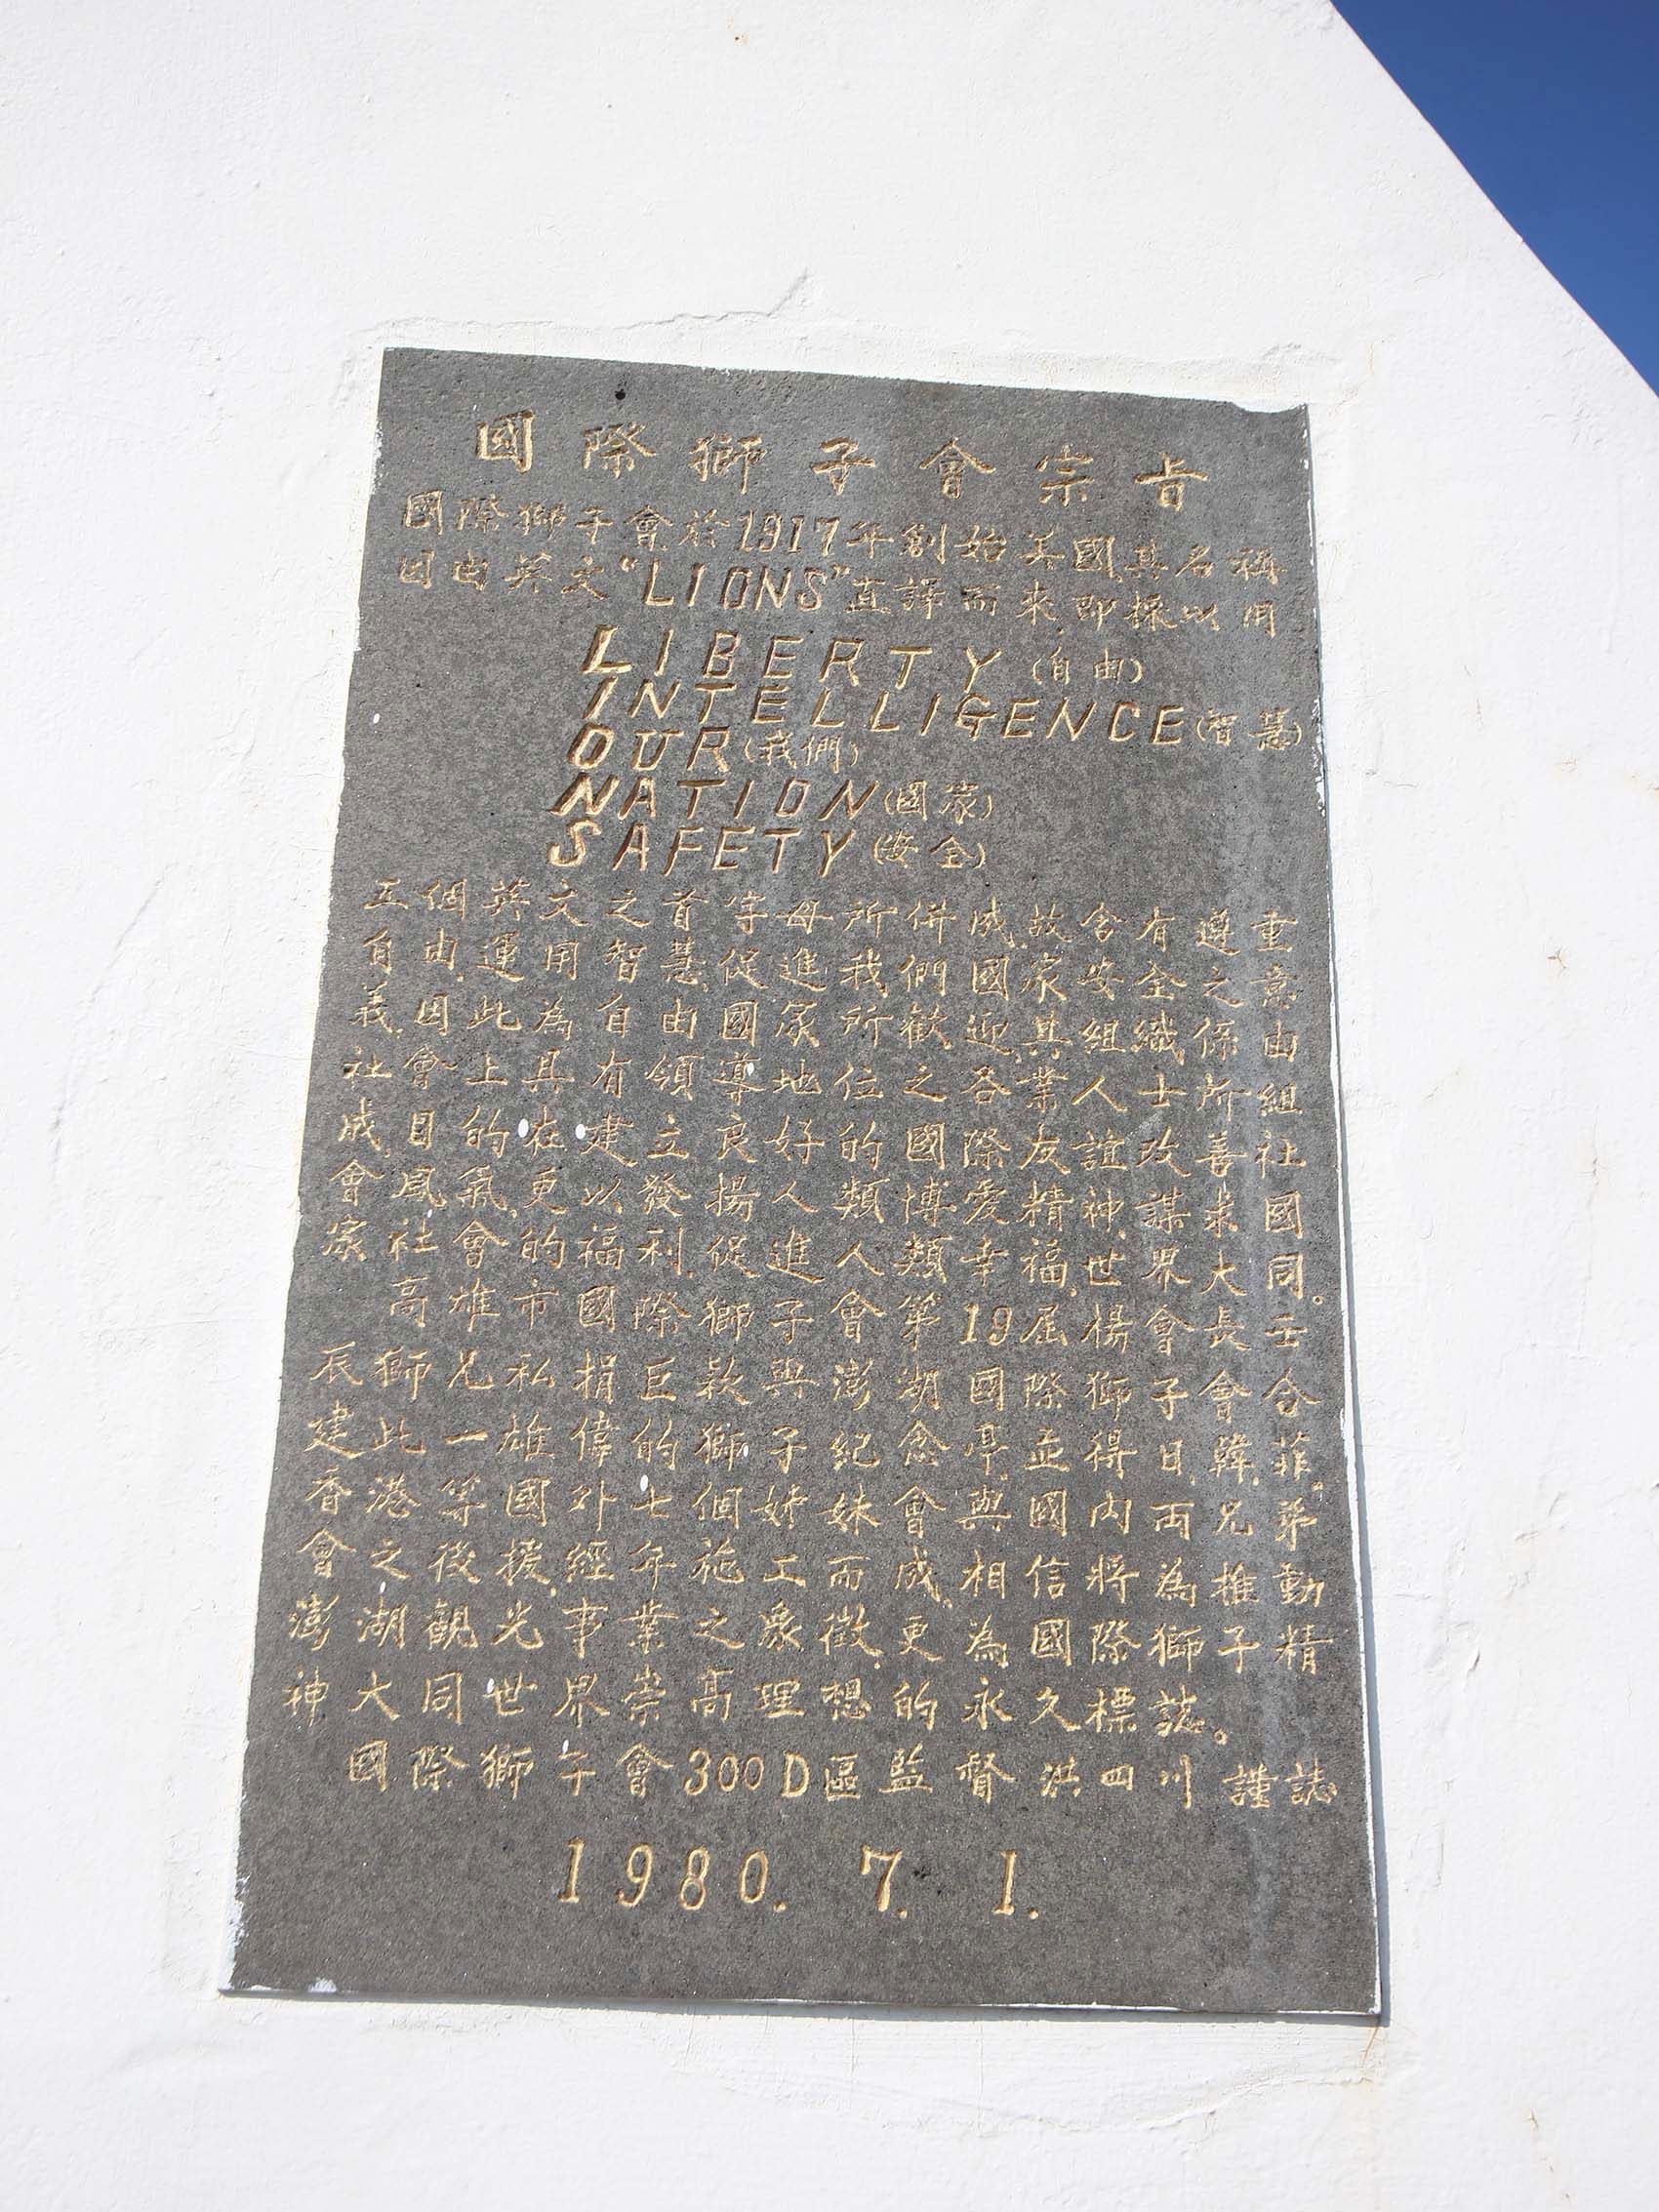 國際獅子會宗旨
國際獅子會於1917年創始美國,其名稱
因由英文“LIONS”直譯而來,即採以用
LIBERTY(自由)
INTELLIGENCE(智慧)
OUR(我們)
NATION(國家)
SAFETY(安全)
五個英文之首字母所併成,故含有遵重
自由,運用智慧,促進我們國家安全之意
義,因此為自由國家所歡迎,其組織係由
社會上具有領導地位之各業人士所組
成,目的在建立良好的國際友誼,改善社
會風氣,更以發揚人類博愛精神,謀求國
家社會的福利,促進人類幸福,世界大同。
高雄市國際獅子會第19屆楊會長壬
辰獅兄私捐巨款與澎湖國際獅子會合
建此一雄偉的獅子紀念亭,並得日,韓,菲。
香港等國外七個姊妹會與國內両兄弟
會之後援,經年施工而成,相信將為推動
澎湖觀光事業之象徵,更為國際獅子精
神大同世界崇高理想的永久標誌。
國際獅子會300D區監督洪四川謹誌
1980.7.1.